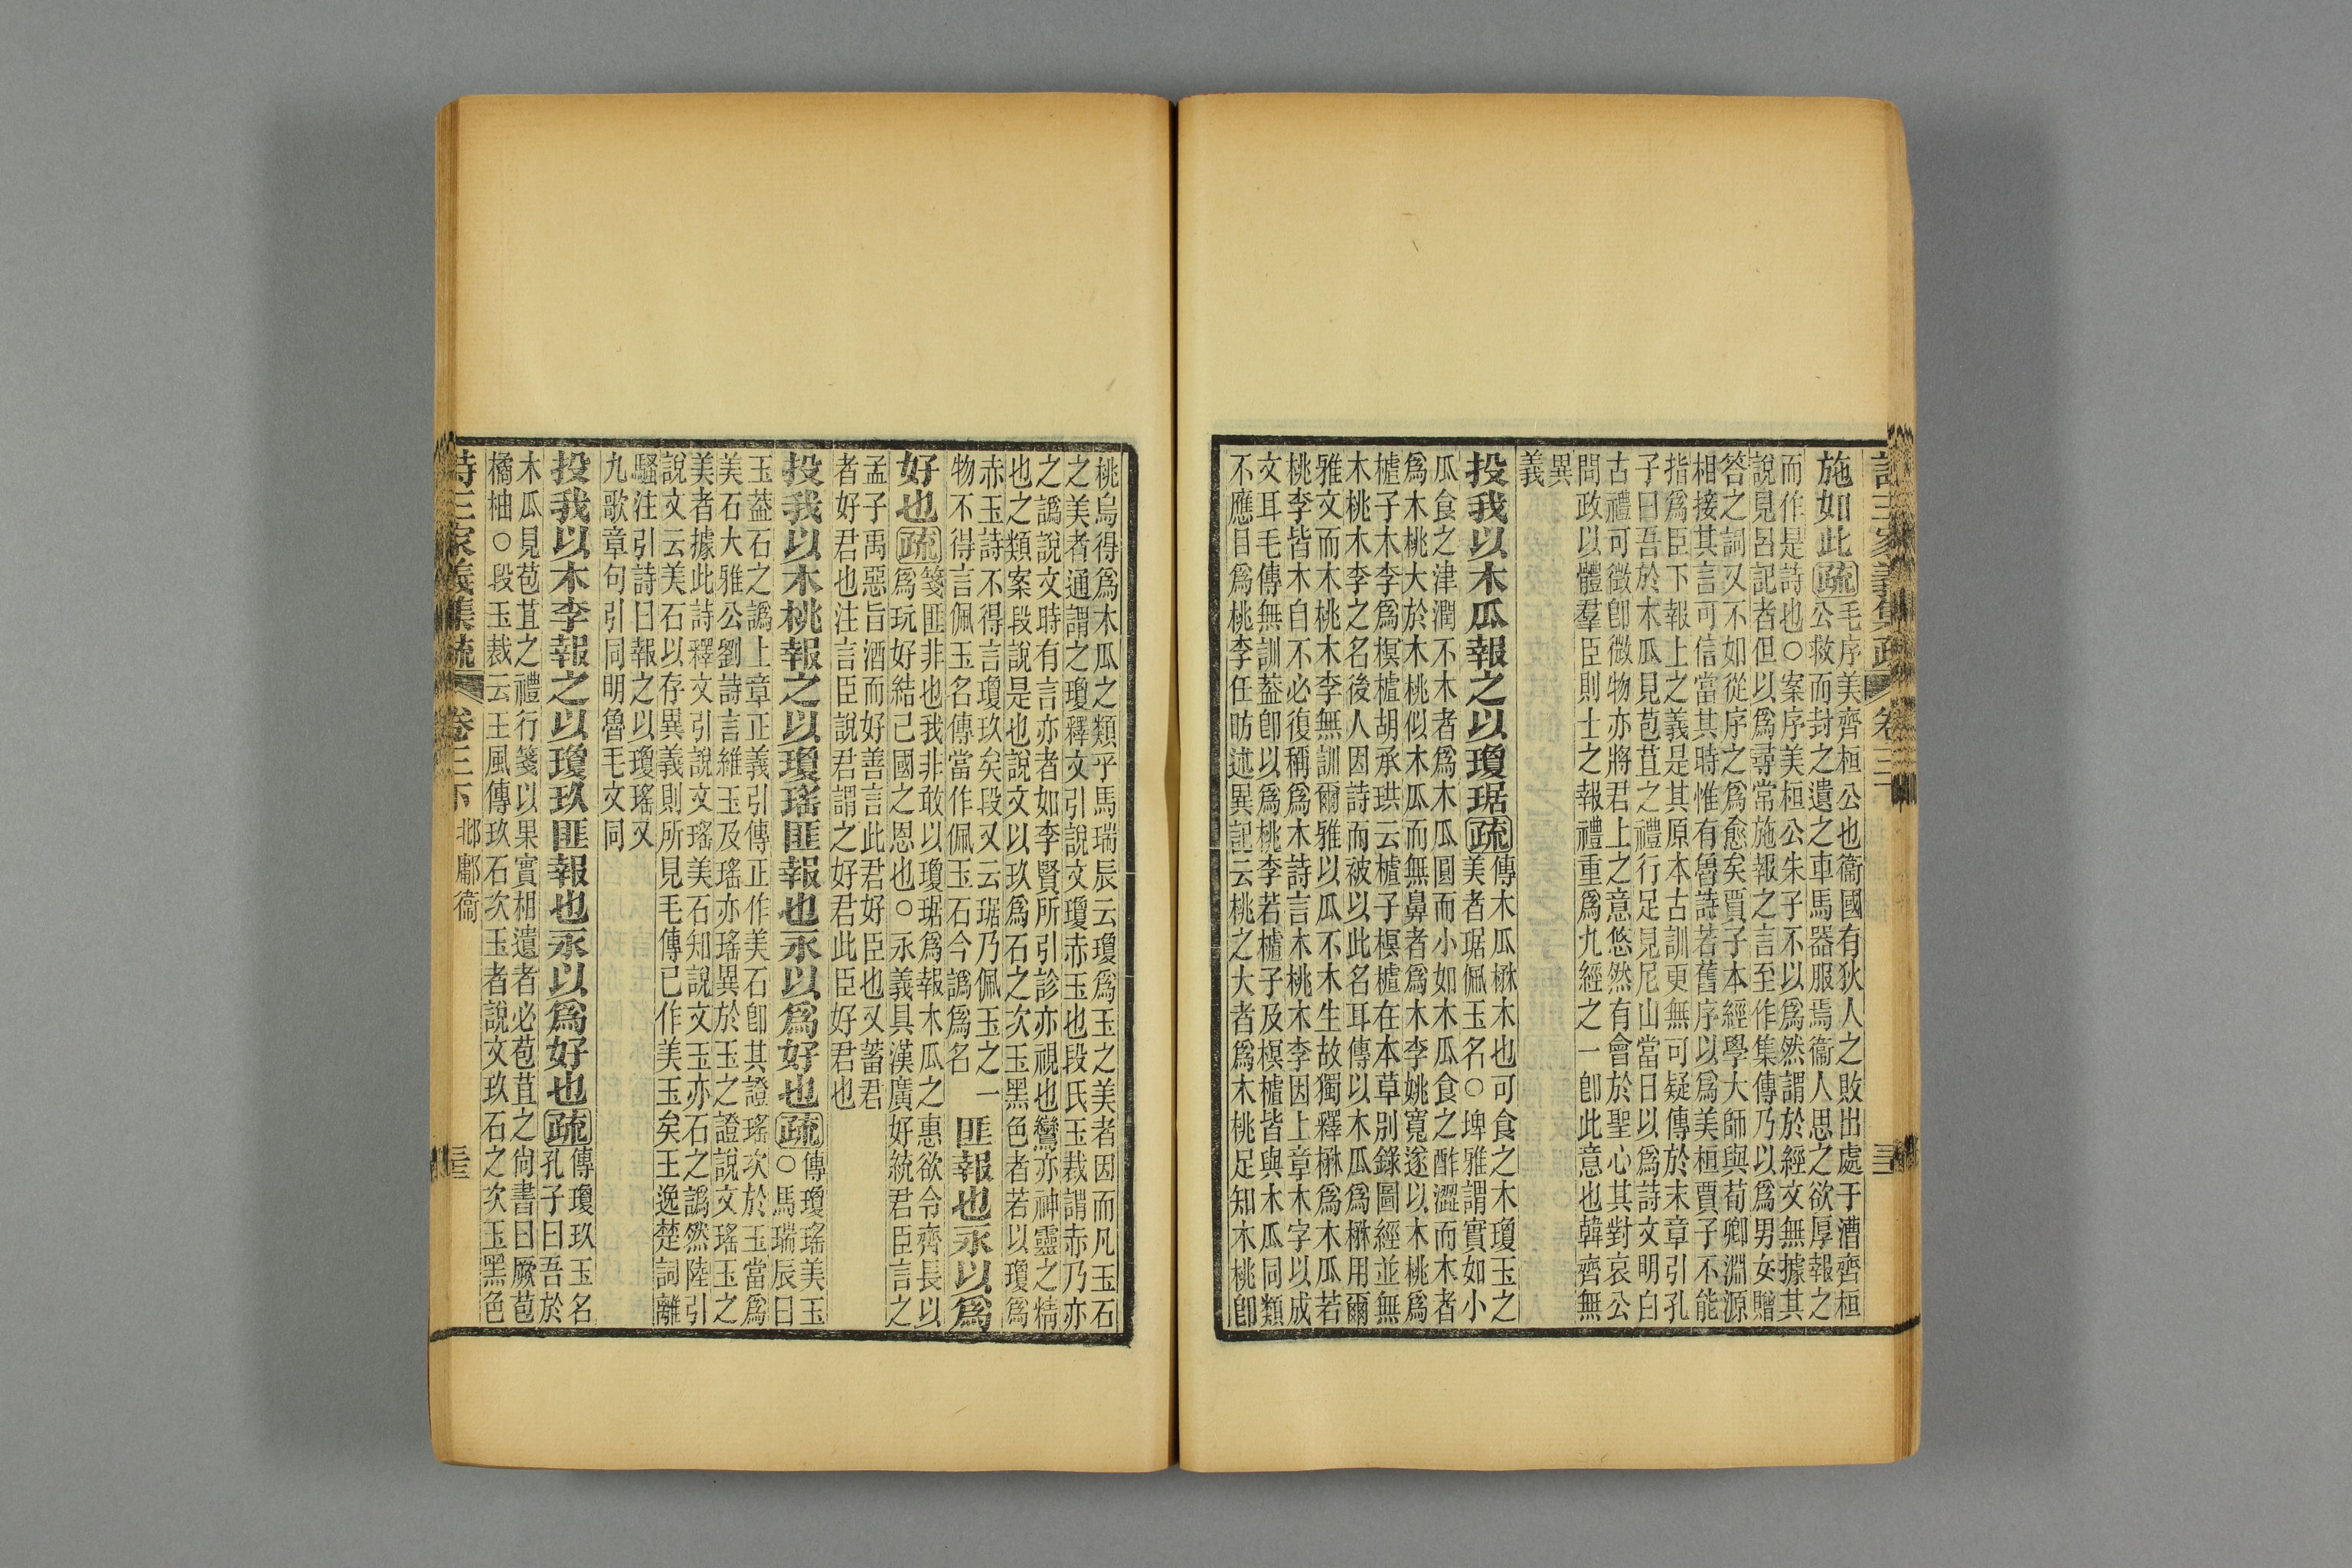 詩三家義集疏 卷三下
施如此疏
毛序美齊桓公也衞國有狄人之敗出處于漕齊桓
公救而封之遺之車馬器服焉衞人思之欲厚報之
而作是詩也○案序美桓公朱子不以爲然謂於經文無據其
說見呂記者但以爲尋常施報之言至作集傳乃以爲男女贈
答之詞又不如從序之爲愈矣賈子本經學大師與荀卿淵源
相接其言可信當其時惟有魯詩若舊序以爲美桓賈子不能
指爲臣下報上之義是其原本古訓更無可疑傳於末章引孔
子曰吾於木瓜見苞苴之禮行足見尼山當日以爲詩文明白
古禮可徵卽微物亦將君上之意悠然有會於聖心其對哀公
問政以體羣臣則士之報禮重爲九經之一卽此意也韓齊無
異
義
投我以木瓜報之以瓊琚疏
傳木瓜楙木也可食之木瓊玉之
美者琚佩玉名○埤雅謂實如小
瓜食之津潤不木者爲木瓜圓而小如木瓜食之酢澀而木者
爲木桃大於木桃似木瓜而無鼻者爲木李姚寬遂以木桃爲
樝子木李爲榠樝胡承珙云樝子榠樝在本草别錄圖經並無
木桃木李之名後人因詩而被以此名耳傳以木瓜爲楙用爾
雅文而木桃木李無訓爾雅以瓜不木生故獨釋楙爲木瓜若
桃李皆木自不必復稱爲木詩言木桃木李因上章木字以成
文耳毛傳無訓葢卽以爲桃李若樝子及榠樝皆與木瓜同類
不應目爲桃李任昉述異記云桃之大者爲木桃足知木桃卽
桃烏得爲木瓜之類乎馬瑞辰云瓊爲玉之美者因而凡玉石
之美者通謂之瓊釋文引說文瓊赤玉也段氏玉裁謂赤乃亦
之譌說文時有言亦者如李賢所引診亦視也鸞亦神靈之精
也之類案段說是也說文以玖爲石之次玉黑色者若以瓊爲
赤玉詩不得言瓊玖矣段又云琚乃佩玉之一
物不得言佩玉名傳當作佩玉石今譌爲名
匪報也永以爲
好也疏
箋匪非也我非敢以瓊琚爲報木瓜之惠欲令齊長以
爲玩好結己國之恩也○永義具漢廣好統君臣言之
孟子禹惡旨酒而好善言此君好臣也又蓄君
者好君也注言臣說君謂之好君此臣好君也
投我以木桃報之以瓊瑤匪報也永以爲好也疏
傳瓊瑤美玉
○馬瑞辰曰
玉葢石之譌上章正義引傳正作美石卽其證瑤次於玉當爲
美石大雅公劉詩言維玉及瑤亦瑤異於玉之證說文瑤玉之
美者據此詩釋文引說文瑤美石知說文玉亦石之譌然陸引
說文云美石以存異義則所見毛傳已作美玉矣王逸楚詞離
騷注引詩曰報之以瓊瑤又
九歌章句引同明魯毛文同
投我以木李報之以瓊玖匪報也永以爲好也疏
傳瓊玖玉名
孔子曰吾於
木瓜見苞苴之禮行箋以果實相遺者必苞苴之尙書曰厥苞
橘柚○段玉裁云王風傳玖石次玉者說文玖石之次玉黑色
詩三家義集疏 卷三下 邶鄘衞